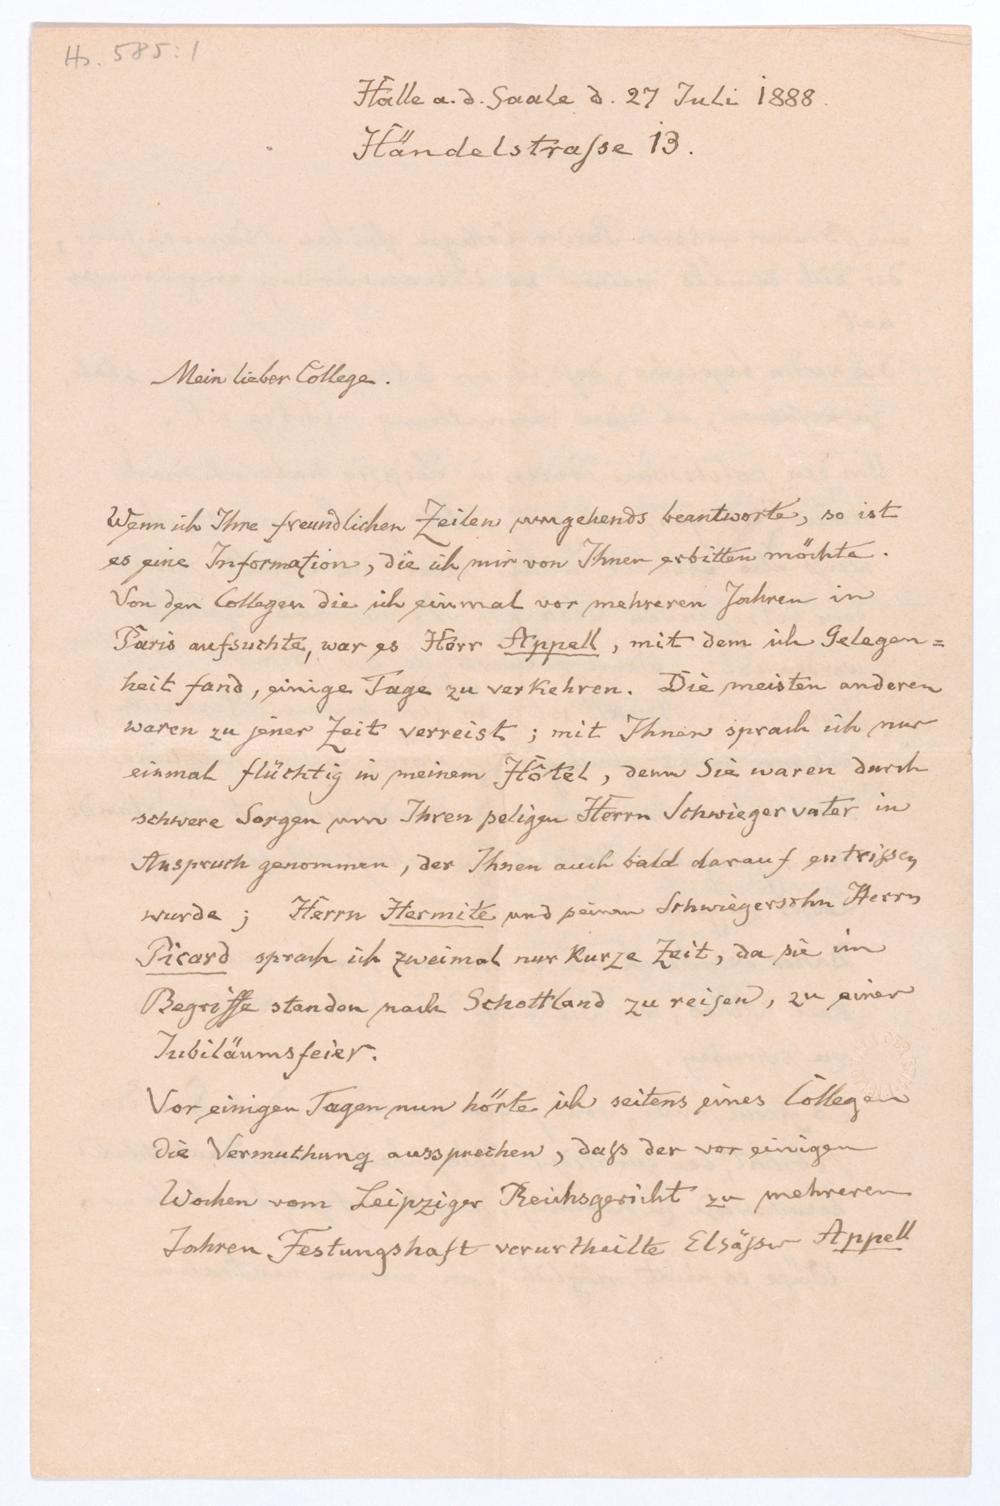 Hs. 585:1
Halle a. d. Saale d. 27 Juli 1888.
Händelstraſse 13.
Mein lieber College.
Wenn ich Ihre freundlichen Zeilen umgehends beantworte, so ist
es eine Information, die ich mir von Ihnen erbitten möchte.
Von den Collegen die ich einmal vor mehreren Jahren in
Paris aufsuchte, war es Herr Appell, mit dem ich Gelegen=
heit fand, einige Tage zu verkehren. Die meisten anderen
waren zu jener Zeit verreist; mit Ihnen sprach ich nur
einmal flüchtig in meinem Hôtel, denn Sie waren durch
schwere Sorgen um Ihren seligen Herrn Schwiegervater in
Anspruch genommen, der Ihnen auch bald darauf entrissen
wurde; Herrn Hermite und seinen Schwiegersohn Herrn
Picard sprach ich zweimal nur kurze Zeit, da sie im
Begriffe standen nach Schottland zu reisen, zu einer
Jubiläumsfeier.
Vor einigen Tagen nun hörte ich seitens eines Collegen
die Vermuthung aussprechen, daſs der vor einigen
Wochen vom Leipziger Reichsgericht zu mehreren
Jahren Festungshaft verurtheilte Elsäſser Appell